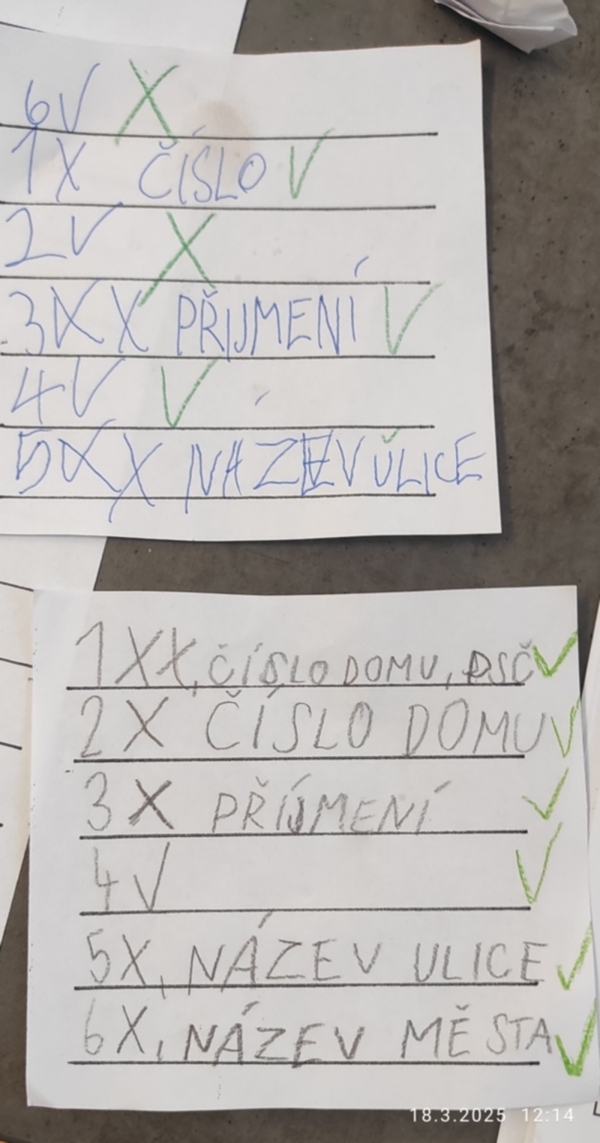 6V X
1X ČÍSLO V
2V X
3XX PŘIJMENÍ V
4V V
5XX NÁZEV ULICE
1XX, ČÍSLO DOMU, PSČ V
2X ČÍSLO DOMU V
3X PŘÍJMENÍ V
4V V
5X, NÁZEV ULICE V
6X, NÁZEV MĚSTA V
18.3.2025 12:14